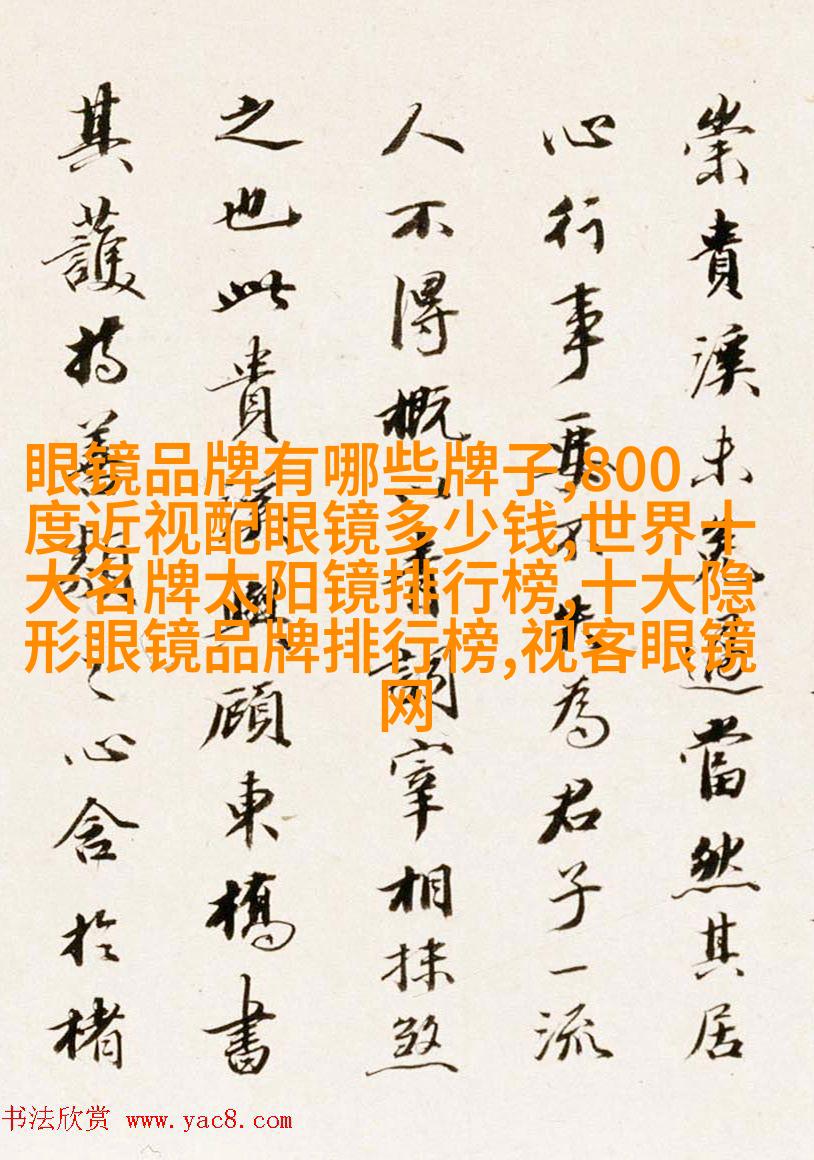 崇貴溪未必過當然其居
心行事要不失為君子一流
人不得概以青詞宰相抹煞
之也此貴溪與顧東橋書
其護持善類之心含於楮
眼镜品牌有哪些牌子,800
度近视配眼镜多少钱,世界十
大名牌太阳镜排行榜,十大隐
形眼镜品牌排行榜,视客眼镜
网
书法欣赏 www.yac8.com